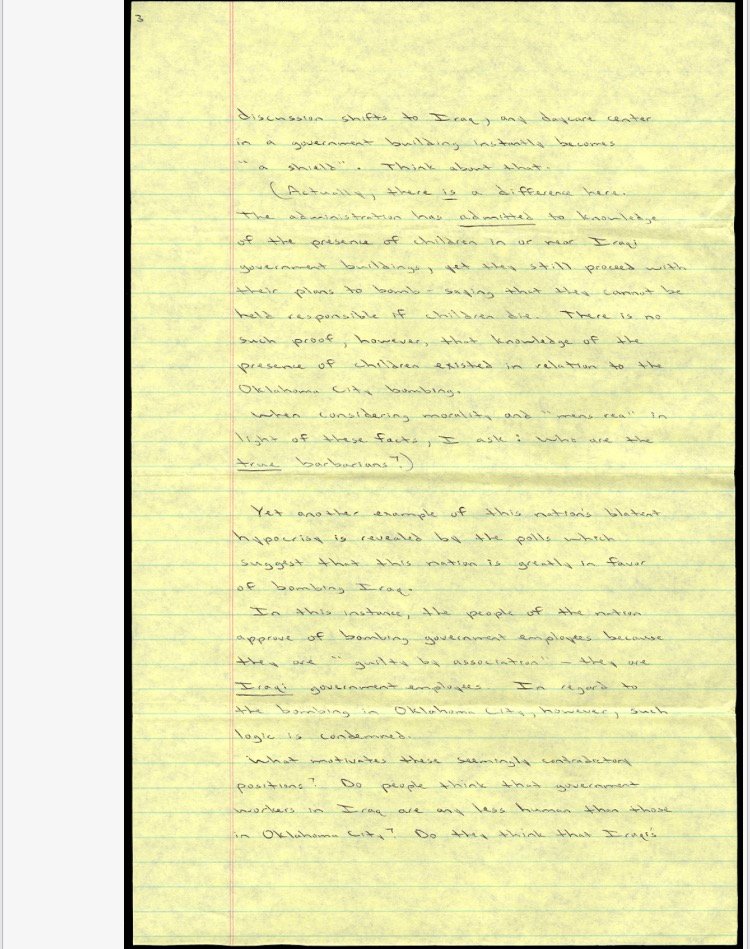 3
discussion shifts to Iraq, any daycare center
in a government building instantly becomes
"a shield". Think about that.
(Actually, there is a difference here.
The administration has admitted to knowledge
of the presence of children in or near Iraqi
government buildings, yet they still proceed with
their plans to bomb - saying that they cannot be
held responsible if children die. There is no
such proof, however, that knowledge of the
presence of children existed in relation to the
Oklahoma City bombing.
When considering morality and "mens rea" in
light of these facts, I ask: Who are the
true barbarians?)
Yet another example of this nation's blatent
hypocrisy is revealed by the polls which
suggest that this nation is greatly in favor
of bombing Iraq.
In this instance, the people of the nation
approve of bombing government employees because
they are "guilty by association" - they are
Iraqi government employees. In regard to
the bombing in Oklahoma City, however, such
logic is condemned.
What motivates these seemingly contradictory
positions? Do people think that government
workers in Iraq are any less human than those
in Oklahoma City? Do they think that Iraqi's